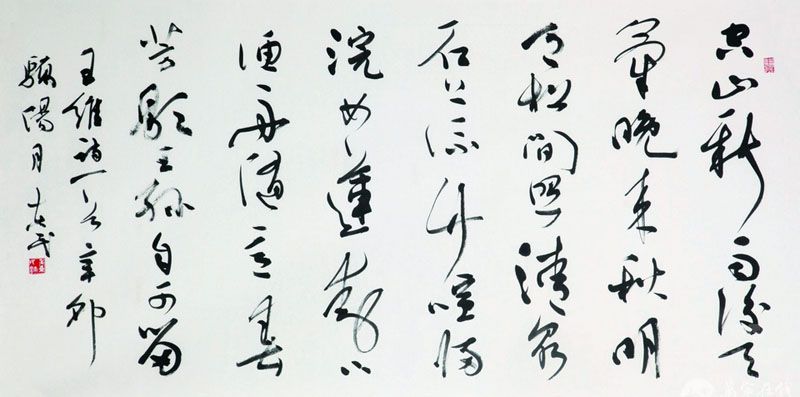 空山新雨後天
氣晚来秋明
月松間照清泉
石上流竹喧歸
浣女蓮動下
漁舟隨意春
芳歇王孫自可留
王維詩一首辛卯
陽月